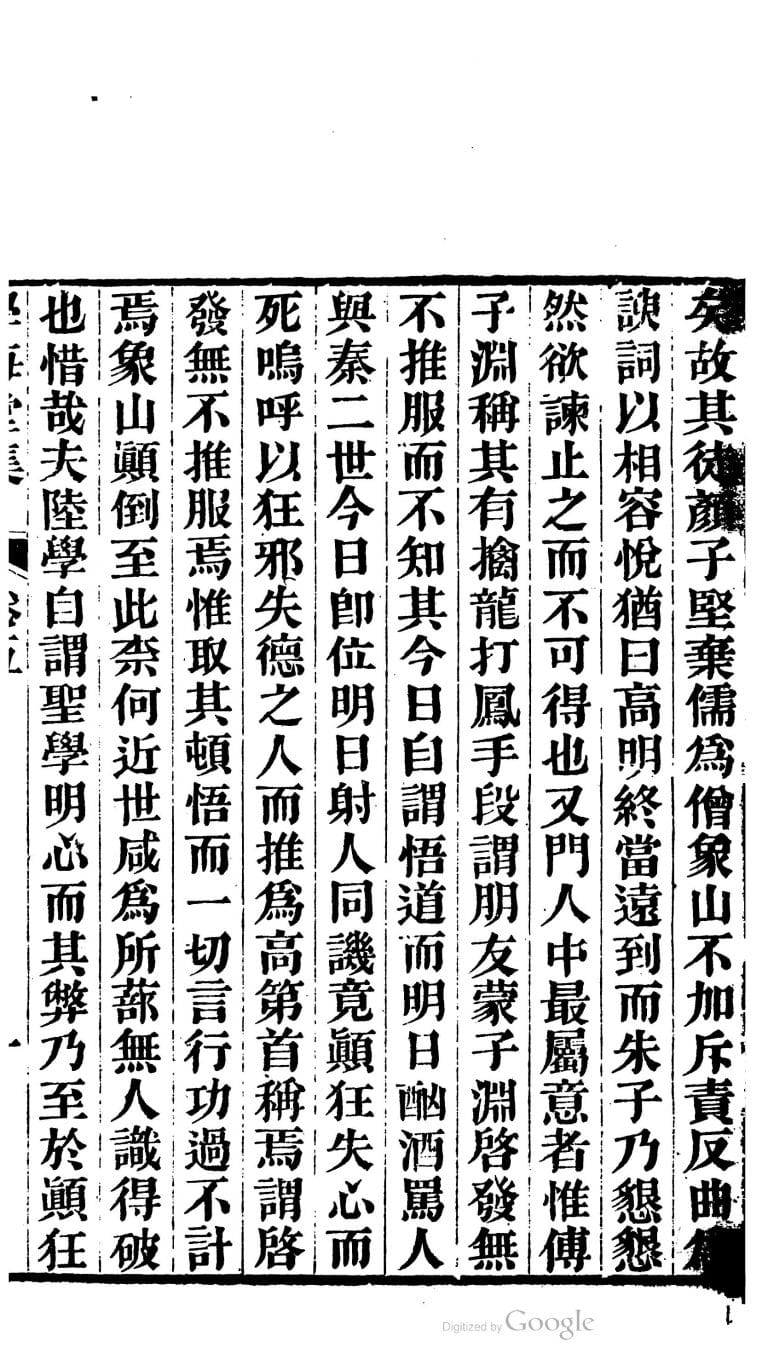 矣故其徒顏子堅棄儒爲僧象山不加斥責反曲爲
諛詞以相容悅猶曰高明終當遠到而朱子乃懇懇
然欲諫止之而不可得也又門人中最屬意者惟傅
子淵稱其有擒龍打鳳手段謂朋友蒙子淵啓發無
不推服而不知其今日自謂悟道而明日酗酒罵人
與秦二世今日卽位明日射人同譏竟顚狂失心而
死嗚呼以狂邪失德之人而推爲高第首稱焉謂啓
發無不推服焉惟取其頓悟而一切言行功過不計
焉象山顚倒至此柰何近世咸爲所蔀無人識得破
也惜哉夫陸學自謂聖學明心而其弊乃至於顚狂
學海堂集
卷五
Digitized by Google